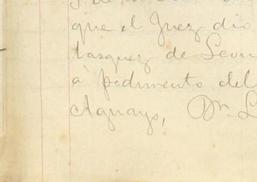 que el Juez dió
Vasquez de Leon
á pedimento del
Aguayo,